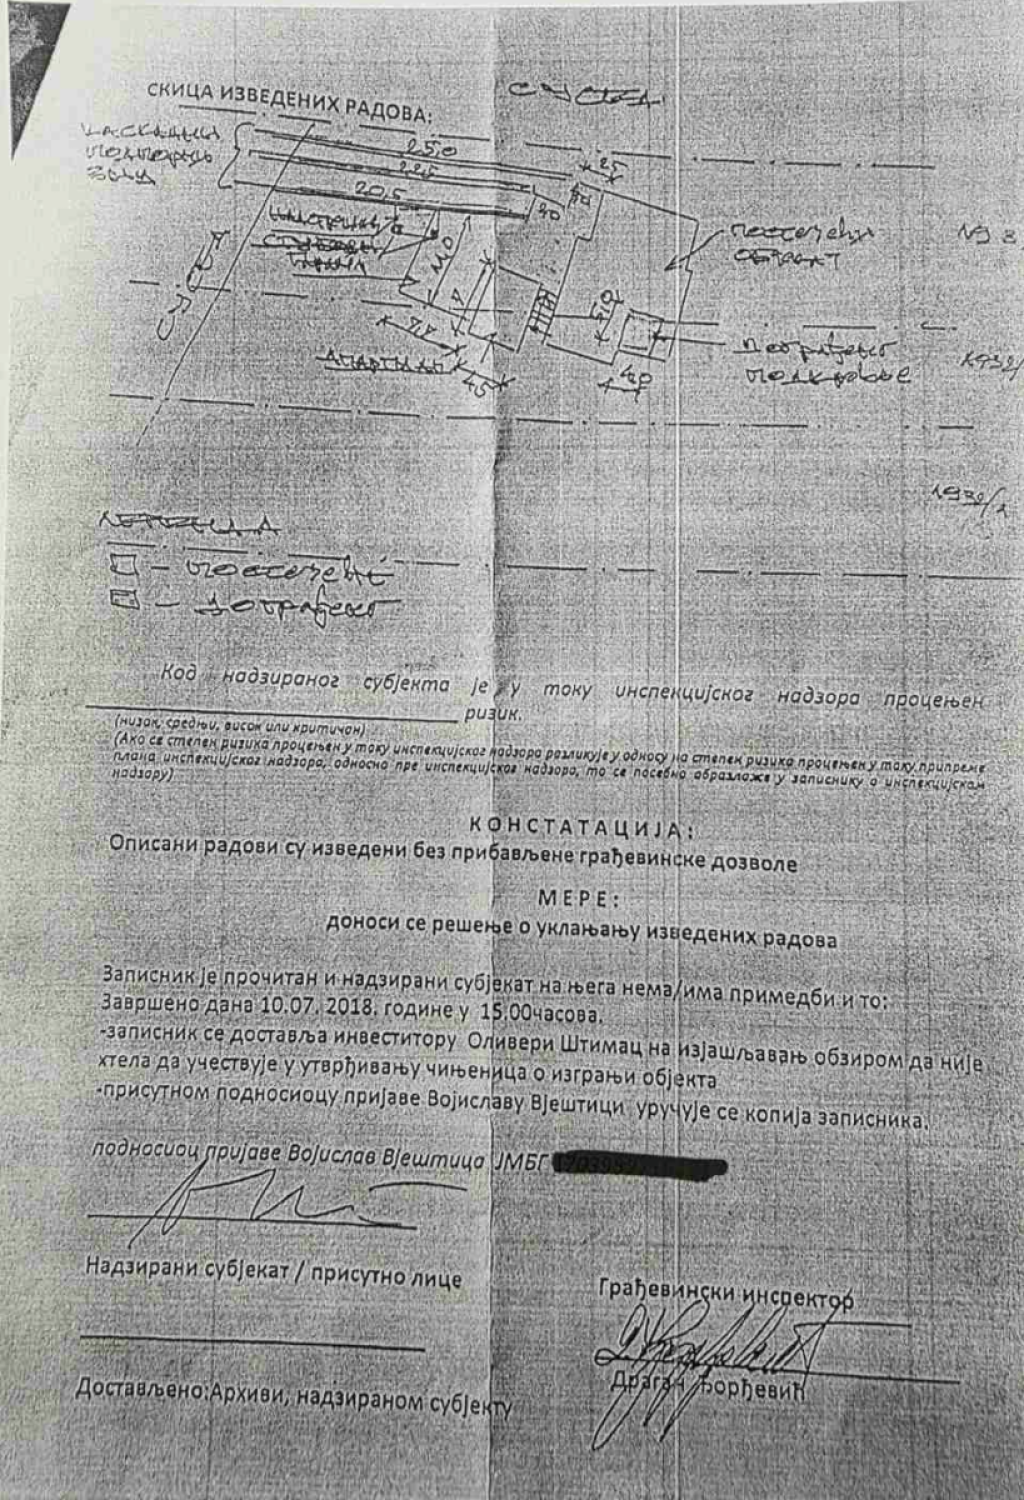 СУСЕД
СКИЦА ИЗВЕДЕНИХ РАДОВА:
КАСКАДНИ
ПОДПОРНИ
ЗИД
25,0
2,5
22,5
20,5
СУСЕД
постојећи
објекат
5,0
4,0
АПАРТМАН
4,5
дограђено
поткровље
1930/1
ЛЕГЕНДА
- постојеће
- дограђено
Код надзираног субјекта је у току инспекцијског надзора процењен
ризик.
(низак, средњи, висок или критичан)
(Ако се степен ризика процењен у току инспекцијског надзора разликује у односу на степен ризика процењен у току припреме
плана инспекцијског надзора, односно пре инспекцијског надзора, то се посебно образлаже у записнику о инспекцијском
надзору)
КОНСТАТАЦИЈА:
Описани радови су изведени без прибављене грађевинске дозволе
МЕРЕ:
доноси се решење о уклањању изведених радова
Записник је прочитан и надзирани субјекат на њега нема/има примедби и то:
Завршено дана 10.07. 2018. године у 15,00часова.
-записник се доставља инвеститору Оливери Штимац на изјашљавањ обзиром да није
хтела да учествује у утврђивању чињеница о изграњи објекта
-присутном подносиоцу пријаве Војиславу Вјештици уручује се копија записника.
подносиоц пријаве Војислав Вјештица ЈМБГ
Надзирани субјекат / присутно лице
Грађевински инспектор
Драган Ђорђевић
Достављено:Архиви, надзираном субјекту